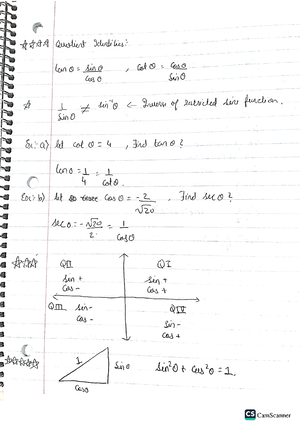 Quotient Identities:
tan θ = sinθ/cosθ , cot θ = cosθ/sinθ
1/sinθ ≠ sin⁻¹θ ← Inverse of restricted sine function.
Ex:- a) let cot θ = 4 , Find tan θ?
tan θ = 1/4 = 1/cotθ.
Ex:- b) let cos θ = -2/√20 , Find sec θ?
sec θ = -√20/2 = 1/cosθ
QII QI
sin + sin +
cos - cos +
QIII sin- QIV
cos - sin -
cos +
1 sinθ sin²θ + cos²θ = 1.
cosθ
CS CamScanner